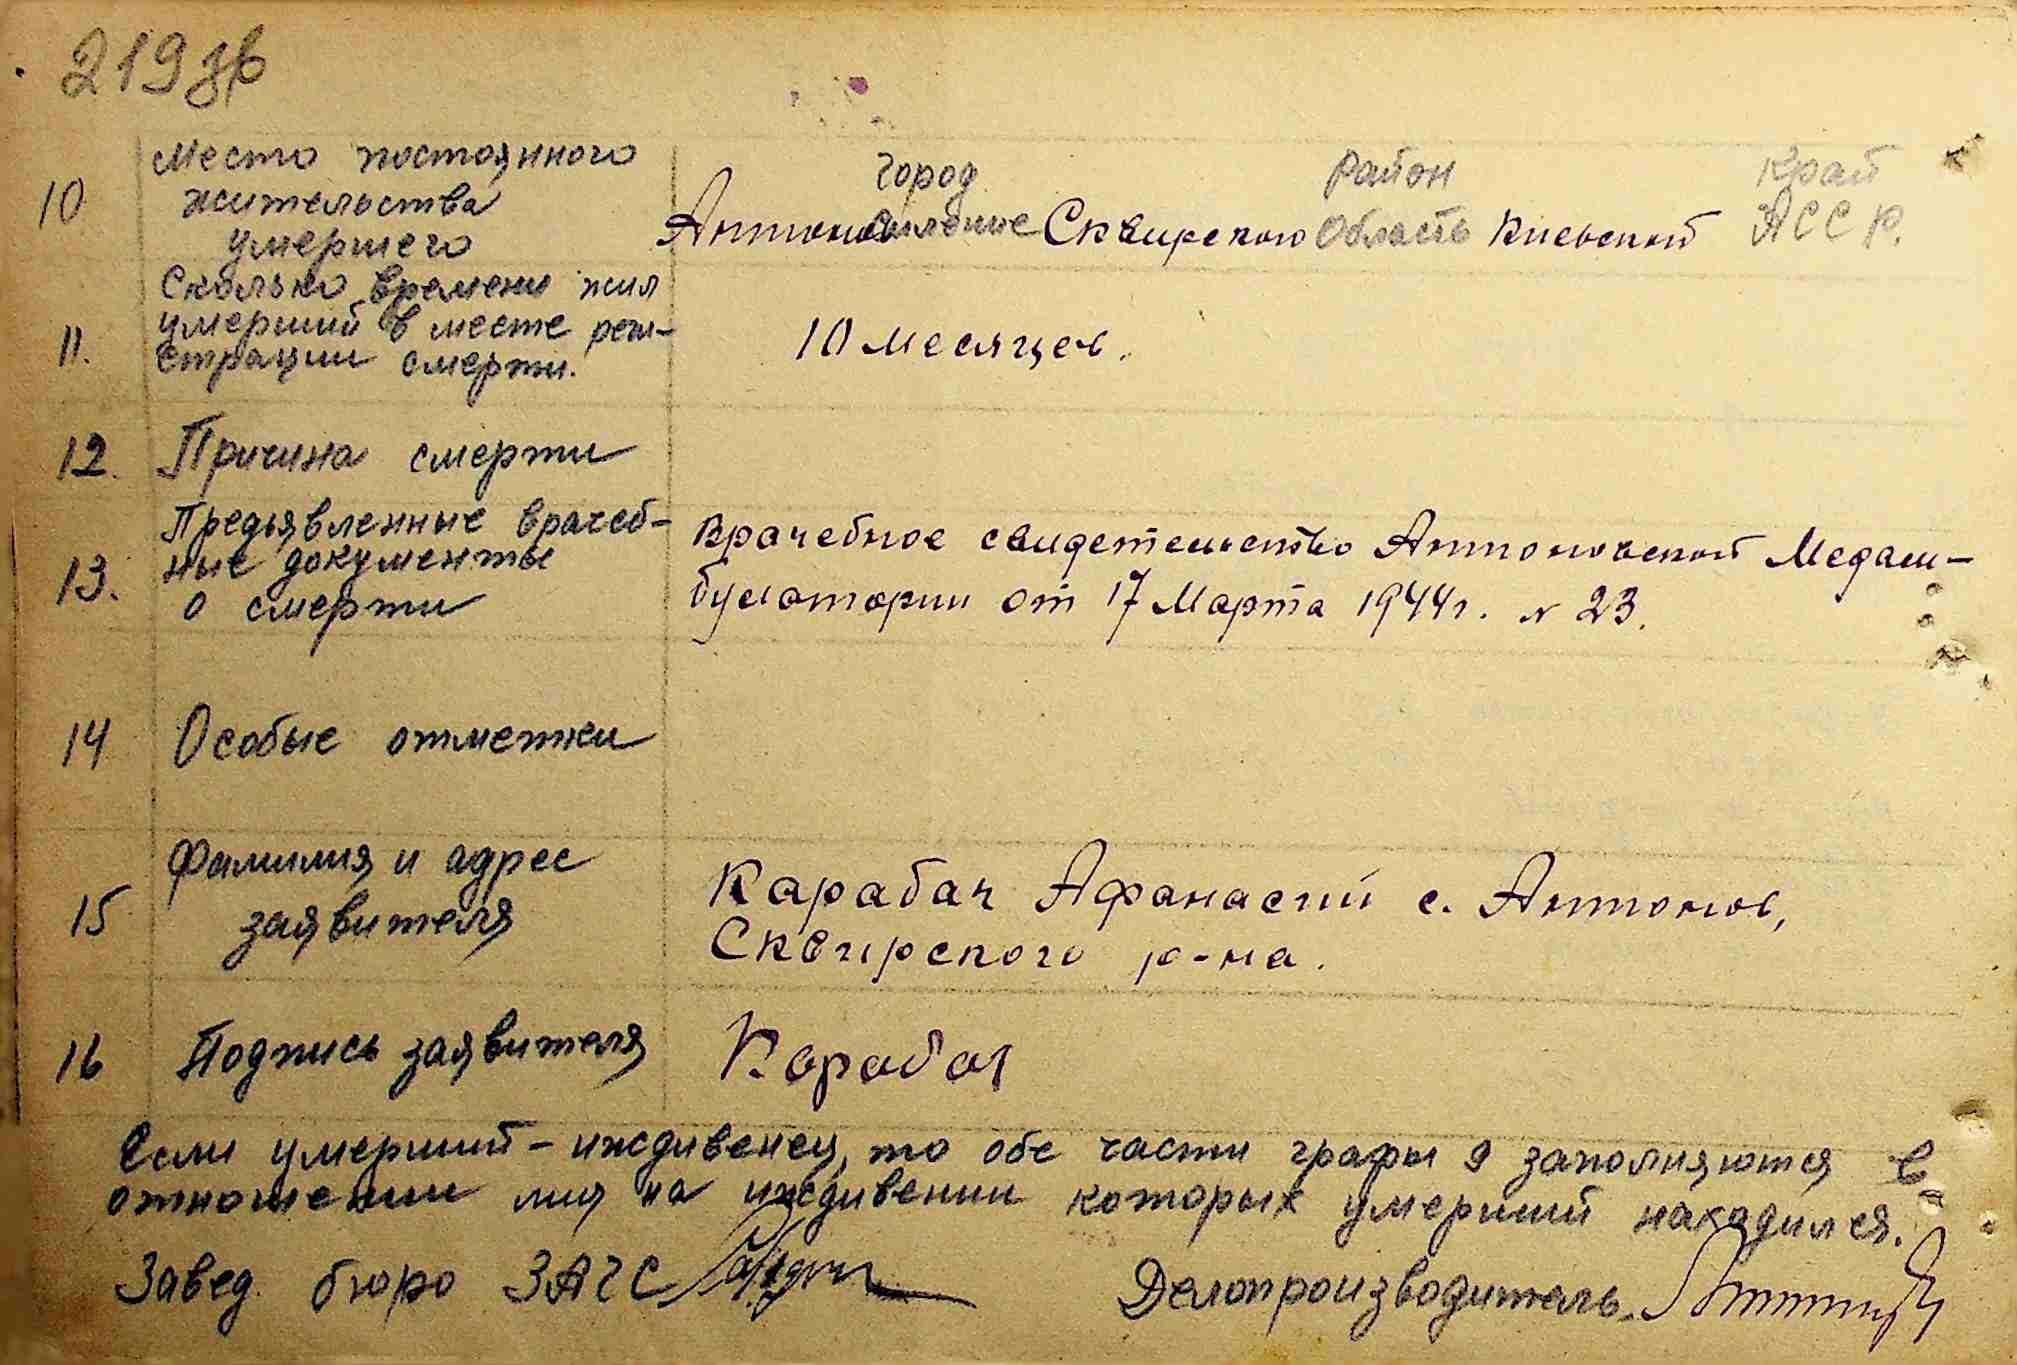 219зв
Место постоянного город район край
10 жительства
умершего Антонов селение Сквирского область Киевской АССР.
Сколько времени жил
11. умерший в месте реги- 10 месяцев.
страции смерти.
12. Причина смерти
Предъявленные врачеб- Врачебное свидетельство Антоновской Медам-
13. ные документы булатории от 17 Марта 1944г. № 23.
о смерти
14 Особые отметки
Фамилия и адрес Карабач Афанасий с. Антонов,
15 заявителя Сквирского р-на.
16 Подпись заявителя Карабач
Если умерший - иждивенец, то обе части графы 9 заполняются в
отношении лиц на иждивении которых умерший находился.
Завед. бюро ЗАГС Делопроизводитель